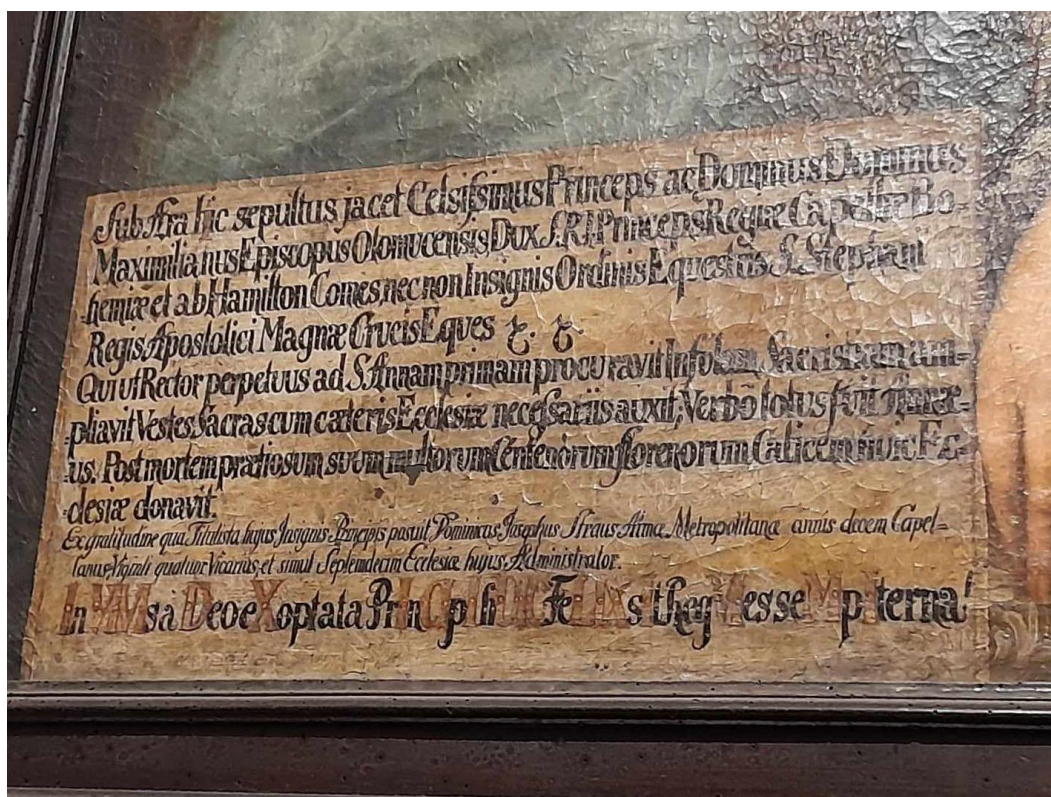 Sub Ara hic sepultus jacet Celsissimus Princeps ac Dominus Dominus
Maximilianus Episcopus Olomucensis, Dux S. R. I. Princeps, Regiæ Capellæ Bo-
-hemiæ et ab Hamilton Comes, nec non Insignis Ordinis Equestris S. Stephani
Regis Apostolici Magnæ Crucis Eques &. &.
Qui ut Rector perpetuus ad S. Annam primam procuravit Infulam, Sacristiam am-
-pliavit Vestes Sacras cum cæteris Ecclesiæ necessariis auxit; Verbo totus fuit Annæ-
-us. Post mortem prætiosum suum multorum Centenorum florenorum Calicem huic Ec-
-clesiæ donavit.
Ex gratitudine qua Titulista hujus Insignis Principis posuit Dominicus Josephus Straus Almæ Metropolitanæ annis decem Capel-
-lanus, Viginti quatuor Vicarius, et simul Septemdecim Ecclesiæ hujus Administrator.
In sa Deo eXoptata PrInCIpI sIt feLIX qs seMpIterna!